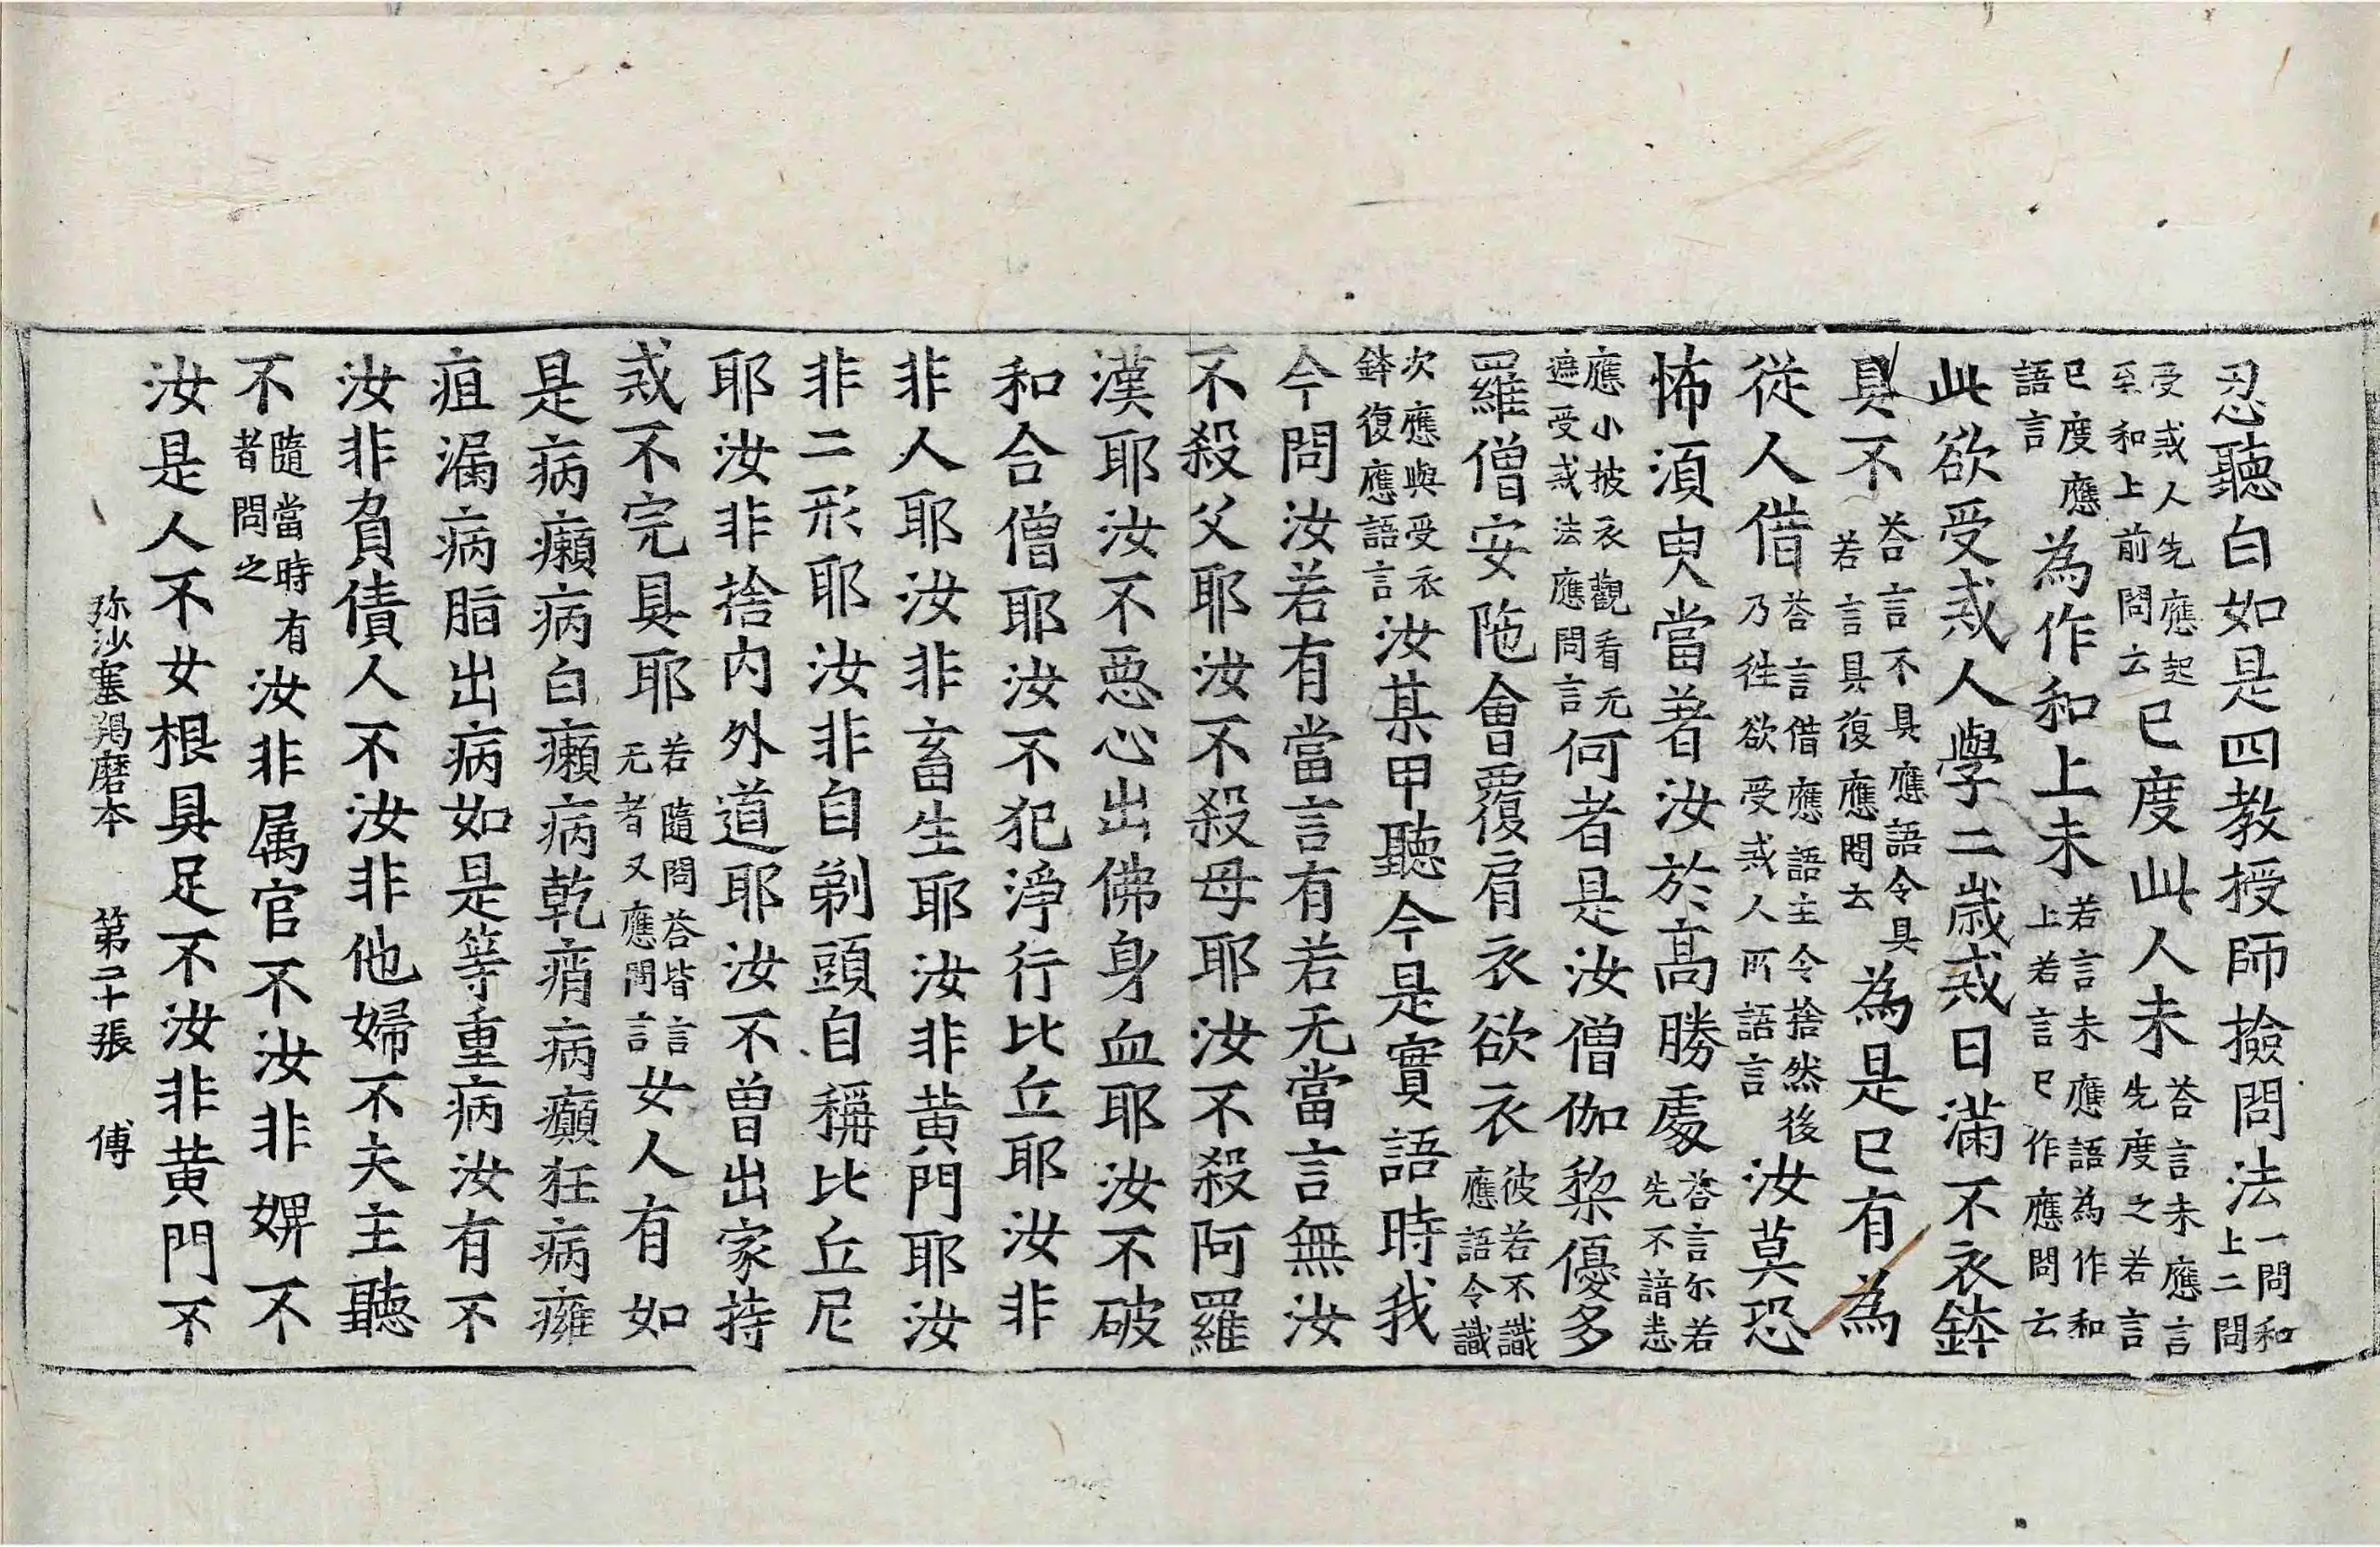 忍聽白如是四教授師撿問法一問和上二問
受戒人先應起至和上前問云已度此人未荅言未應言先度之若言
已度應語言為作和上未若言未應語為作和上若言已作應問云
此欲受戒人學二歲戒日滿不衣鉢
具不荅言不具應語令具若言具復應問云為是已有為
從人借荅言借應語主令捨然後乃往欲受戒人所語言汝莫恐
怖須臾當著汝於高勝處荅言尓若先不諳悉
應小披衣觀看无遮受戒法應問言何者是汝僧伽棃優多
羅僧安陁會覆肩衣欲衣彼若不識應語令識
次應與受衣鉢復應語言汝某甲聽今是實語時我
今問汝若有當言有若无當言無汝
不殺父耶汝不殺母耶汝不殺阿羅
漢耶汝不惡心出佛身血耶汝不破
和合僧耶汝不犯淨行比丘耶汝非
非人耶汝非畜生耶汝非黃門耶汝
非二形耶汝非自剃頭自稱比丘尼
耶汝非捨內外道耶汝不曾出家持
戒不完具耶若隨問荅皆言无者又應問言女人有如
是病癩病白癩病乾痟病癲狂病癰
疽漏病脂出病如是等重病汝有不
汝非負債人不汝非他婦不夫主聽
不隨當時有者問之汝非属官不汝非婢不
汝是人不女根具足不汝非黃門不
弥沙塞羯磨本 第二十張 傅